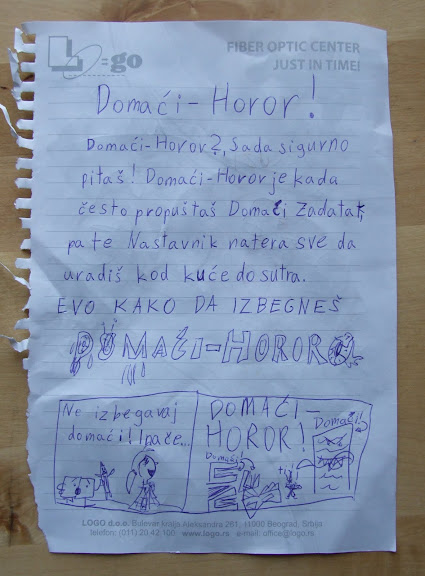 Logo
FIBER OPTIC CENTER
JUST IN TIME!
Domaći-Horor!
Domaći-Horor?, Sada sigurno
pitaš! Domaći-Horor je kada
često propuštaš Domaći Zadatak,
pa te Nastavnik natera sve da
uradiš kod kuće do sutra.
EVO KAKO DA IZBEGNEŠ
DOMAĆI-HOROR
Ne izbegavaj
domaći! Ipače...
DOMAĆI-
HOROR!
Domaći!
Domaći!
LOGO d.o.o. Bulevar kralja Aleksandra 261, 11000 Beograd, Srbija
telefon: (011) 20 42 100 www.logo.rs e-mail: office@logo.rs